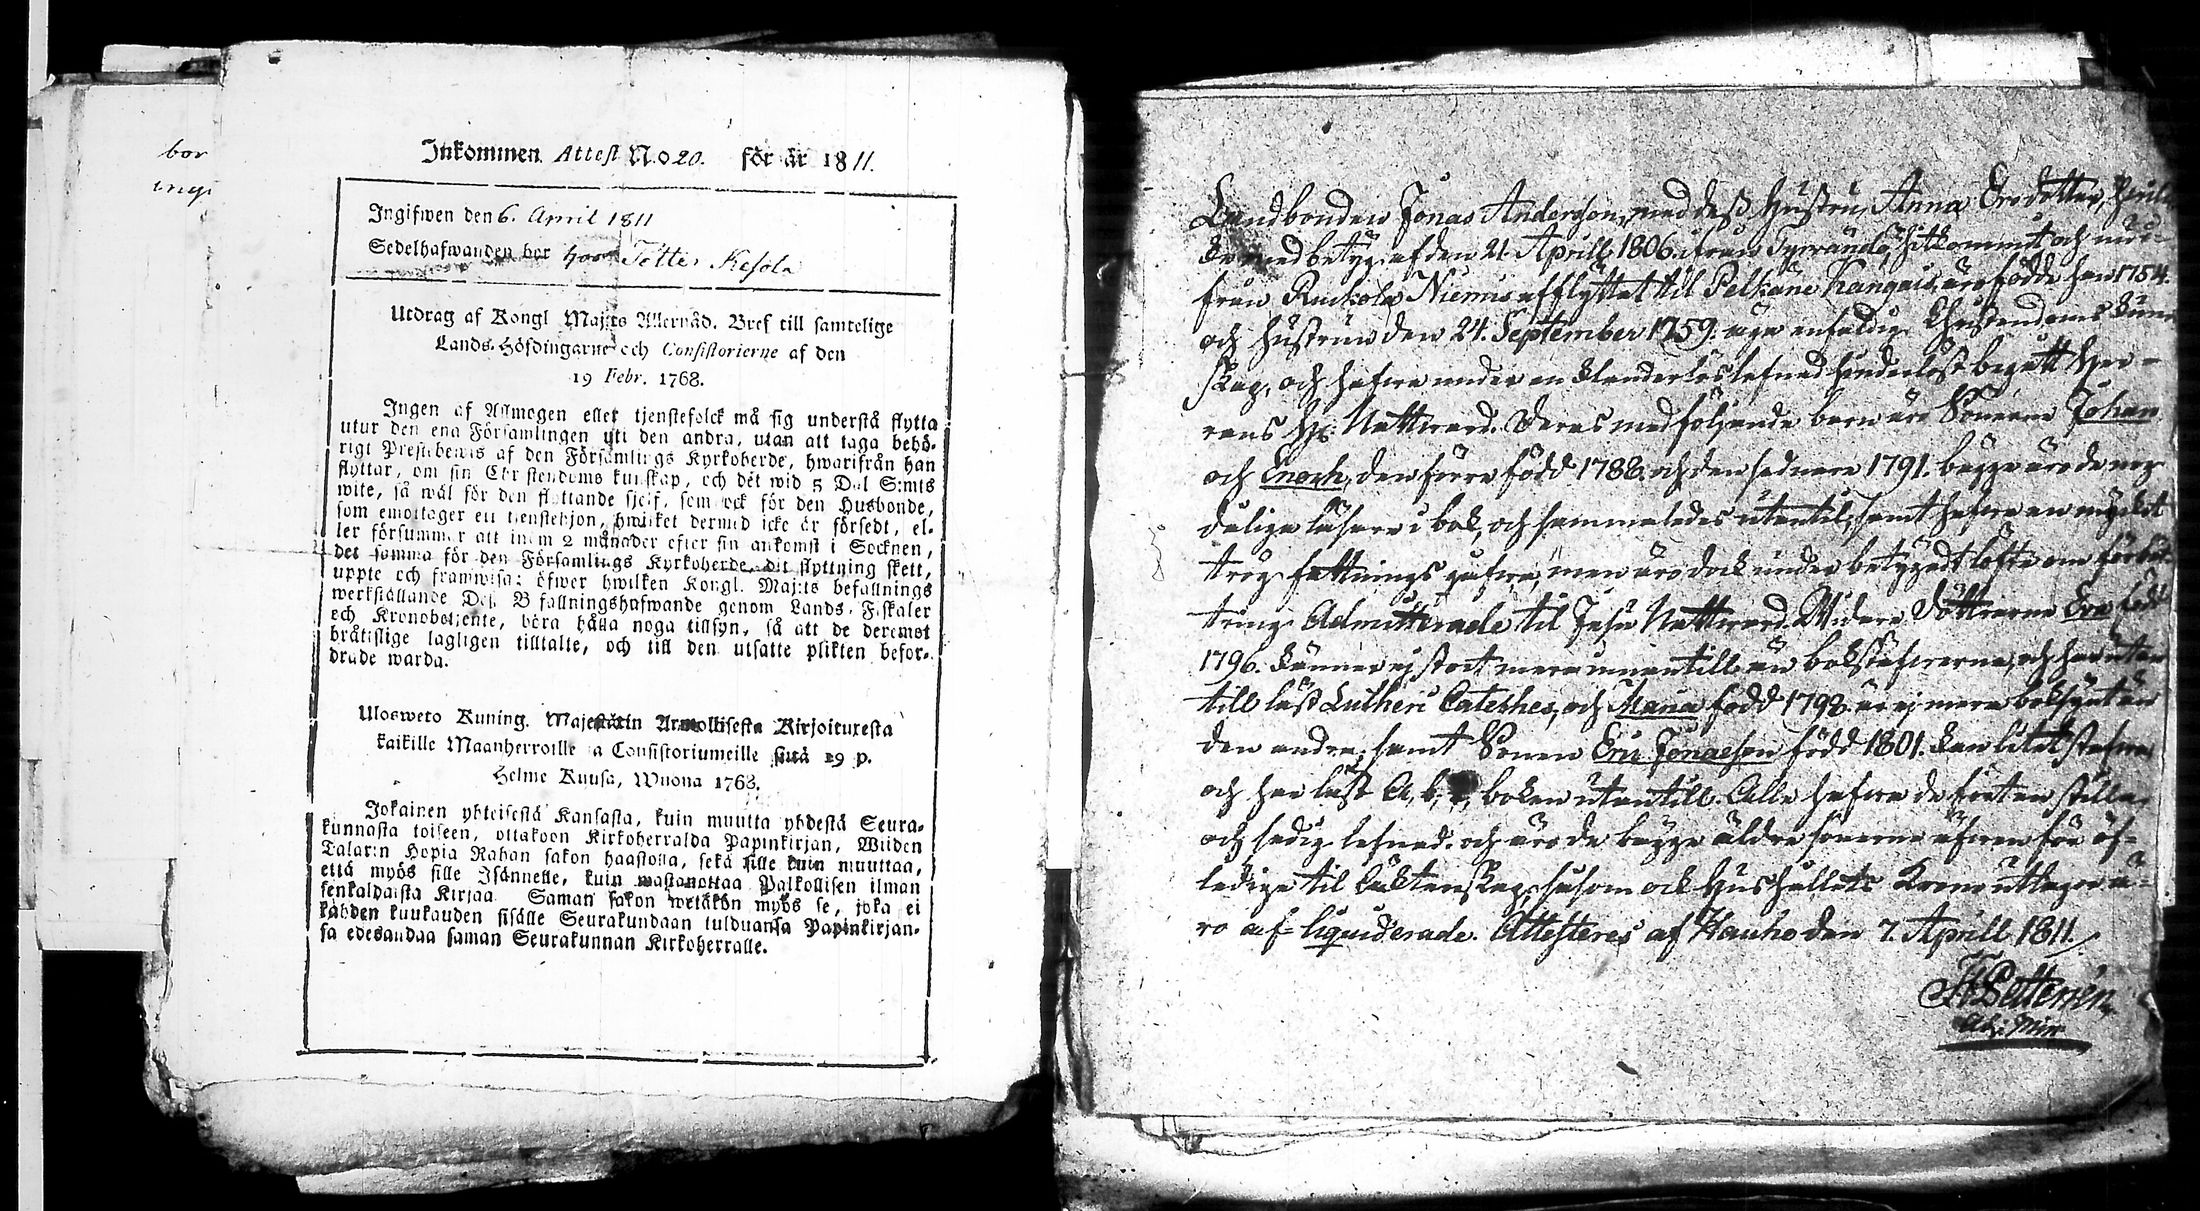 bor
Inkommen Attest No 20. för år 1811.
Ingifwen den 6. April 1811
Sedelhafwanden bor hos Tötter Kesola
Utdrag af Kongl Maj:ts Allernåd. Bref till samtelige
Lands-Höfdingarne och Consistorierne af den
19 Febr. 1768.
Ingen af Allmogen eller tjenstefolck må sig understå flytta
utur den ena Församlingen uti den andra, utan att taga behö-
rigt Prestebewis af den Församlings Kyrkoherde, hwarifrån han
flyttar, om sin Christendoms kunskap, och det wid 5 Dal S:mts
wite, så wäl för den flyttande sjelf, som ock för den Husbonde,
som emottager ett tjenstehjon, hwilket dermed icke är försedt, el-
ler försummar att inom 2 månader efter sin ankomst i Socknen,
det samma för den Församlings Kyrkoherde, dit flyttning skett,
uppte och framwisa: öfwer hwilken Kongl. Maj:ts befallnings
werkställande Des. Befallningshafwande genom Lands-Fiskaler
och Kronobetjente, böra hålla noga tillsyn, så att de deremot
bråtislige lagligen tilltalte, och till den utsatte plikten befor-
drade warda.
Ulosweto Kuning. Majestätin Armollisesta Kirjoituxesta
kaikille Maanherroille ja Consistoriumeille siitä 19 p.
Helme Kuusa, Wuona 1768.
Jokainen yhteisestä Kansasta, kuin muutta yhdestä Seura-
kunnasta toiseen, ottakoon Kirkoherralda Papinkirjan, Wiiden
Talarin Hopia Rahan sakon haastolla, sekä sille kuin muuttaa,
että myös sille Isännelle, kuin wastanottaa Palkollisen ilman
senkaldaista Kirjaa Saman sakon wetäkön myös se, joka ei
kahden kuukauden sisälle Seurakundaan tulduansa Papinkirjan-
sa edesandaa saman Seurakunnan Kirkoherralle.
Landbonden Jonas Andersson, med dess Hustru Anna Ersdotter,
de med betyg af den 21. Aprill 1806. ifrån Tyrvändö, hitkommit och nu i-
från Ruokola Niemis afflyttat til Pelkäne Kangais, äro födde han 1754.
och hustrun den 24. September 1759. äga enfaldig Christendoms Kun-
skap, och hafva under en klanderlös lefnad hinderlöst begått Her-
rans H: Nattward. Deras medföljande barn äro Sönerne Johan
och Enoch, den förre född 1788. och den sednare 1791. bägge äro de nog
dålige läsare i bok, och sammaledes utantil, samt hafva en mycket
trög fattnings gåfva, men äro dock under betygadt löfte om förbät-
tring Admitterade til Jesu Nattward. Widare Döttrarne Eva född
1796. känner ej stort mera innantill än bokstäfwerna, och har utan
till läst Lutheri Cateches, och Maria född 1798. är ej mera boksynt än
den andra; samt Sonen Eric Jonaesson född 1801. kan litet stafwa
och har läst A, b, c, boken utantill. Alla hafva de fört en stilla
och sedig lefnad. och äro de bägge äldre sönerne äfven för öf-
ledige til Äktenskap, såsom ock Hushållets Krono utlagor ä-
ro af-liquiderade. Attesteres af Hauho den 7. Aprill 1811.
Adj: Min.